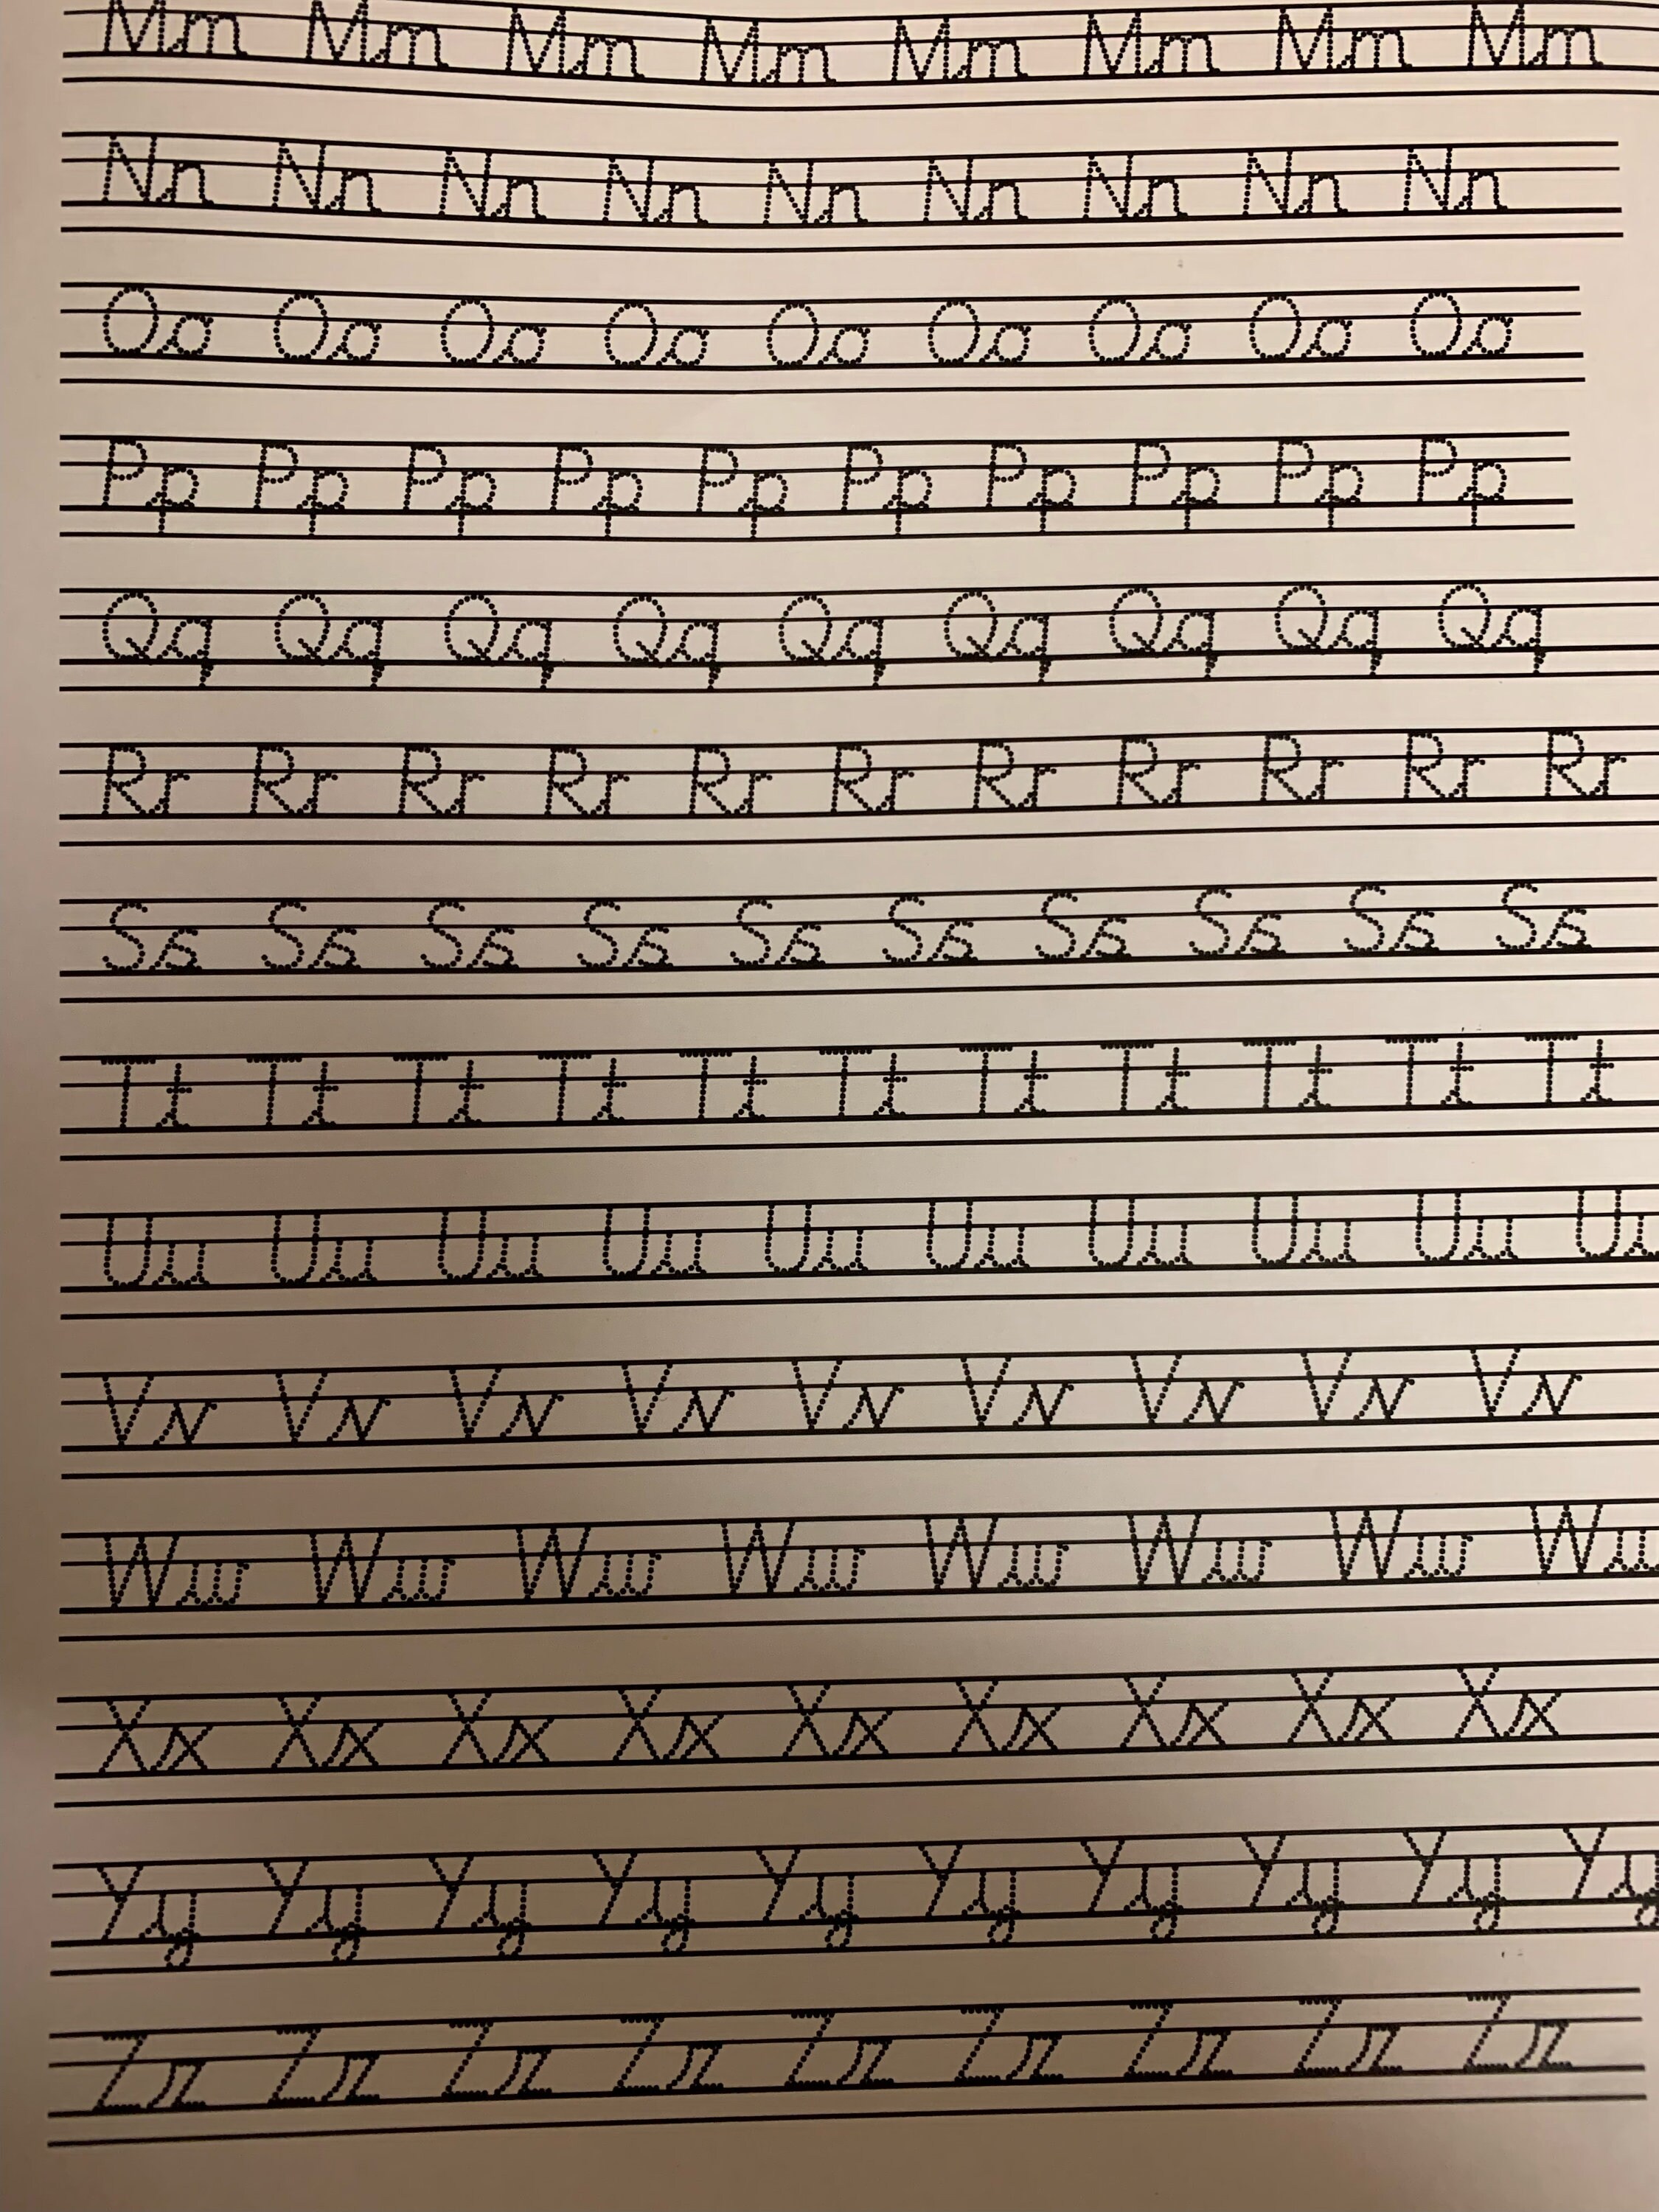 Mm Mm Mm Mm Mm Mm Mm Mm
Nn Nn Nn Nn Nn Nn Nn Nn Nn
Oo Oo Oo Oo Oo Oo Oo Oo Oo
Pp Pp Pp Pp Pp Pp Pp Pp Pp Pp
Qq Qq Qq Qq Qq Qq Qq Qq Qq
Rr Rr Rr Rr Rr Rr Rr Rr Rr Rr Rr
Ss Ss Ss Ss Ss Ss Ss Ss Ss Ss
Tt Tt Tt Tt Tt Tt Tt Tt Tt Tt Tt
Uu Uu Uu Uu Uu Uu Uu Uu Uu Uu
Vv Vv Vv Vv Vv Vv Vv Vv Vv
Ww Ww Ww Ww Ww Ww Ww Ww
Xx Xx Xx Xx Xx Xx Xx Xx Xx
Yy Yy Yy Yy Yy Yy Yy Yy Yy Yy
Zz Zz Zz Zz Zz Zz Zz Zz Zz